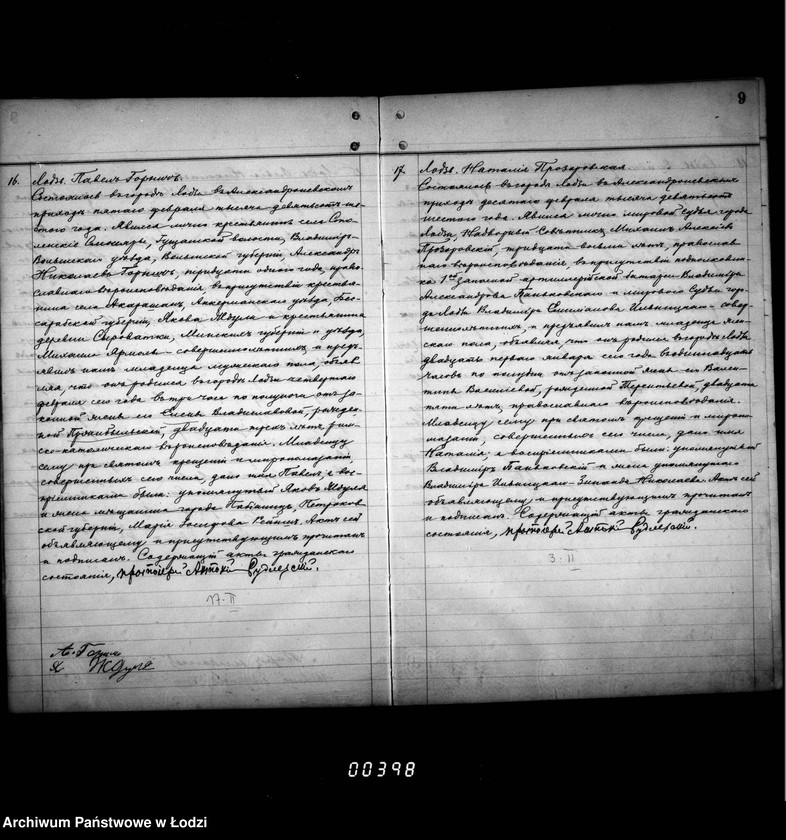 9
16. Лодзь. Павелъ Горныхъ.
Состоялось въ городѣ Лодзи въ Александроневскомъ
приходѣ пятаго февраля тысяча девятьсотъ ше-
стого года. Явился лично крестьянинъ села
волости, Владимiръ-
Волынскаго уѣзда, Волынской губернiи, Александръ
Николаевъ Горныхъ, тридцати одного года, право-
славнаго вѣроисповѣданiя, въ присутствiи крестья-
нина села Аккерманскаго уѣзда, Бес-
сарабской губернiи, Якова и крестьянина
деревни Сыроватки, Минскихъ губернiи и уѣзда,
Михаила совершеннолѣтнихъ, и предъ-
явилъ намъ младенца мужескаго пола, объяв-
ляя, что онъ родился въ городѣ Лодзи четвертаго
февраля сего года въ три часа по полуночи отъ за-
конной жены его Елены Владиславовой, рожден-
ной двадцати трехъ лѣтъ рим-
ско-католическаго вѣроисповѣданiя. Младенцу
сему при святомъ крещенiи и миропомазанiи,
совершенныхъ сего числа, дано имя Павелъ, а вос-
прiемниками были: упомянутый Яковъ
и жена мѣщанина города Пабiаницъ, Петроков-
ской губернiи, Марiя Актъ сей
объявляющему и присутствующимъ прочитанъ
и подписанъ. Содержащiй акты гражданскаго
состоянiя, протоiерей Антонiй Рудлевскiй.
17-II
А. Горных
Я.
17. Лодзь. Наталiя Прозоровская
Состоялось въ городѣ Лодзи въ Александроневскомъ
приходѣ десятаго февраля тысяча девятьсотъ
шестого года. Явился лично мировой судья города
Лодзи, Надворный Совѣтникъ Михаилъ Алексѣевъ
Прозоровскiй, тридцати восьми лѣтъ, православ-
наго вѣроисповѣданiя, въ присутствiи подполковни-
ка 1ой запасной артиллерiйской батареи Владимiра
Александрова и мирового Судьи горо-
да Лодзи Владимiра совер-
шеннолѣтнихъ, и предъявилъ намъ младенца жен-
скаго пола, объявляя, что онъ родился въ городѣ Лодзи
двадцать перваго января сего года въ одиннадцать
часовъ по полудни отъ законной жены его Вален-
тины Васильевой, рожденной двадцати
пяти лѣтъ, православнаго вѣроисповѣданiя.
Младенцу сему при святомъ крещенiи и миропо-
мазанiи, совершенныхъ сего числа, дано имя
Наталiя, а воспрiемниками были: упомянутый
Владимiръ и жена упомянутаго
Владимiра Зинаида Николаева. Актъ сей
объявляющему и присутствующимъ прочитанъ
и подписанъ. Содержащiй акты гражданскаго
состоянiя, протоiерей Антонiй Рудлевскiй.
3-II
00398
Archiwum Państwowe w Łodzi